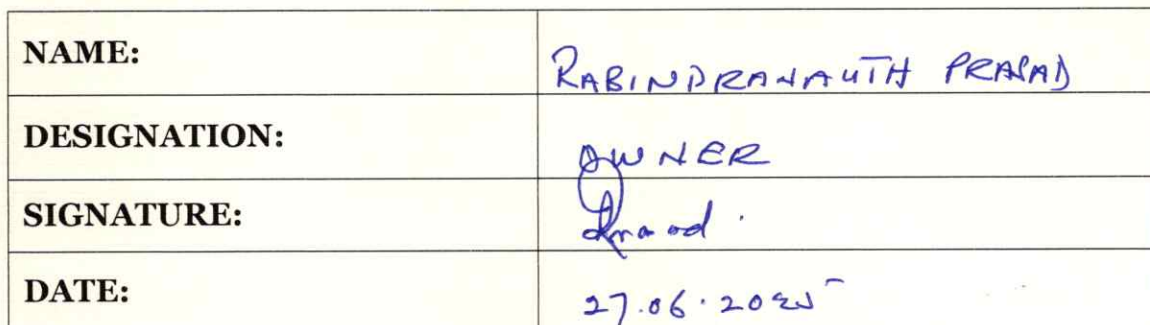 NAME: RABINDRANAUTH PRASAD
DESIGNATION: OWNER
SIGNATURE:
DATE: 27.06.2025